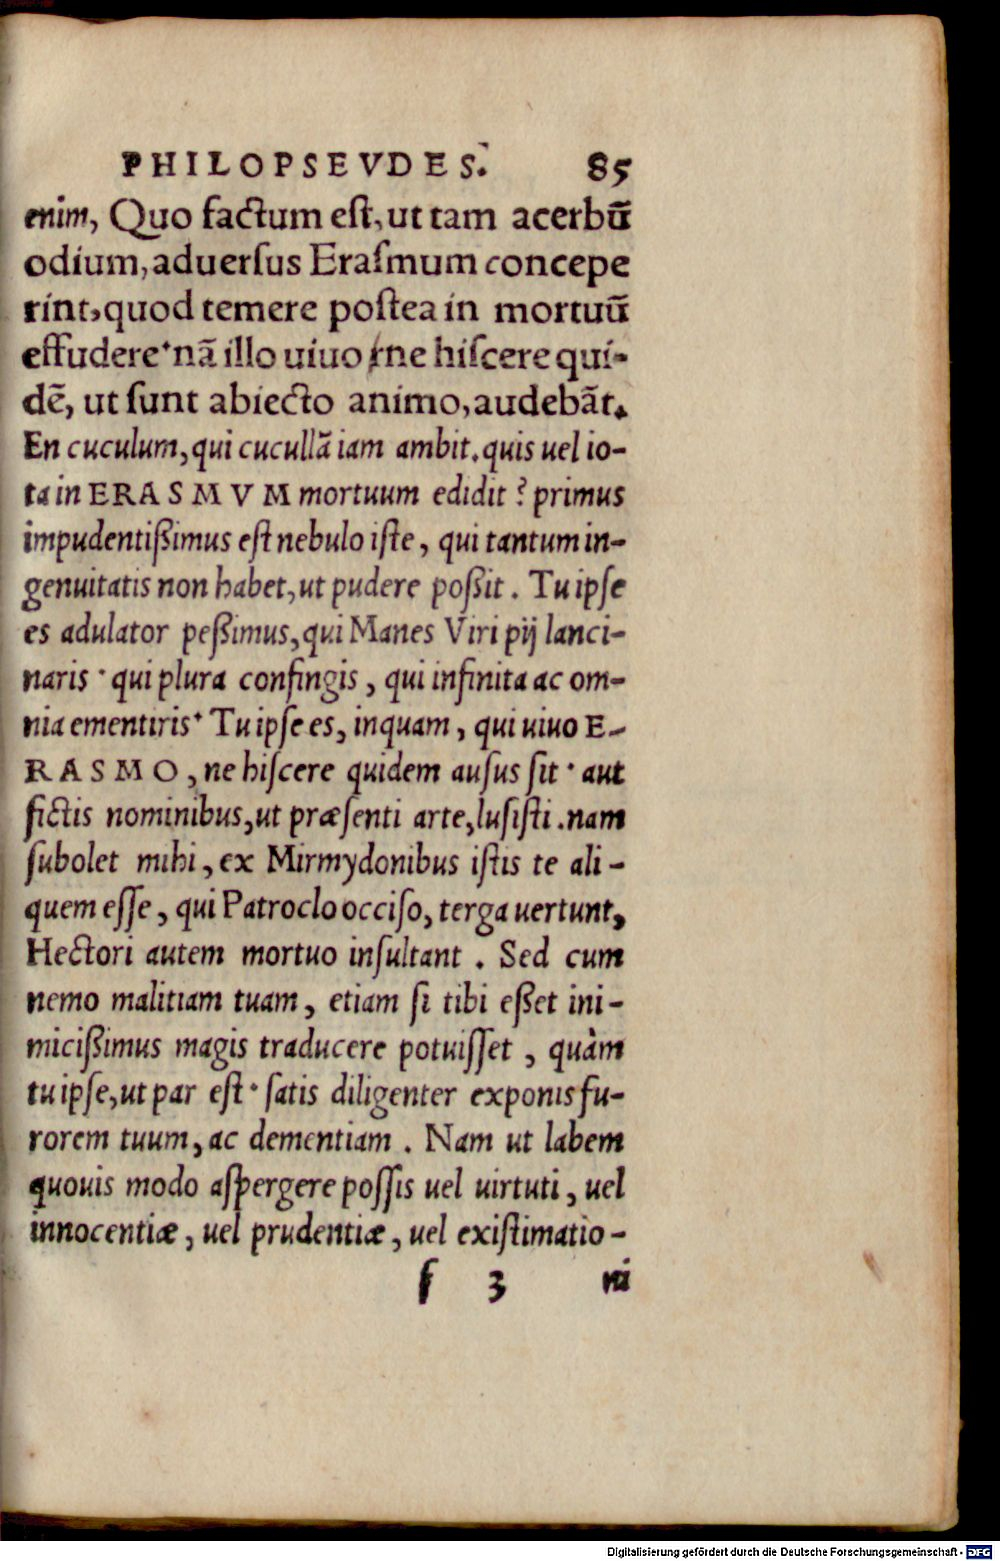 PHILOPSEVDES. 85
enim, Quo factum eſt, ut tam acerbū
odium, aduerſus Eraſmum concepe
rint, quod temere poſtea in mortuū
effudere· nā illo uiuo ne hiſcere qui-
dē, ut ſunt abiecto animo, audebāt.
En cuculum, qui cucullā iam ambit. quis uel io-
ta in ERASMVM mortuum edidit? primus
impudentißimus eſt nebulo iſte, qui tantum in-
genuitatis non habet, ut pudere poßit. Tu ipſe
es adulator peßimus, qui Manes Viri pij lanci-
naris· qui plura confingis, qui infinita ac om-
nia ementiris· Tu ipſe es, inquam, qui uiuo E-
RASMO, ne hiſcere quidem auſus ſit· aut
fictis nominibus, ut præſenti arte, luſiſti. nam
ſubolet mihi, ex Mirmydonibus iſtis te ali-
quem eſſe, qui Patroclo occiſo, terga uertunt,
Hectori autem mortuo inſultant. Sed cum
nemo malitiam tuam, etiam ſi tibi eßet ini-
micißimus magis traducere potuiſſet, quàm
tu ipſe, ut par eſt· ſatis diligenter exponis fu-
rorem tuum, ac dementiam. Nam ut labem
quouis modo aſpergere poſſis uel uirtuti, uel
innocentiæ, uel prudentiæ, uel exiſtimatio-
f 3 ni
Digitalisierung gefördert durch die Deutsche Forschungsgemeinschaft - DFG